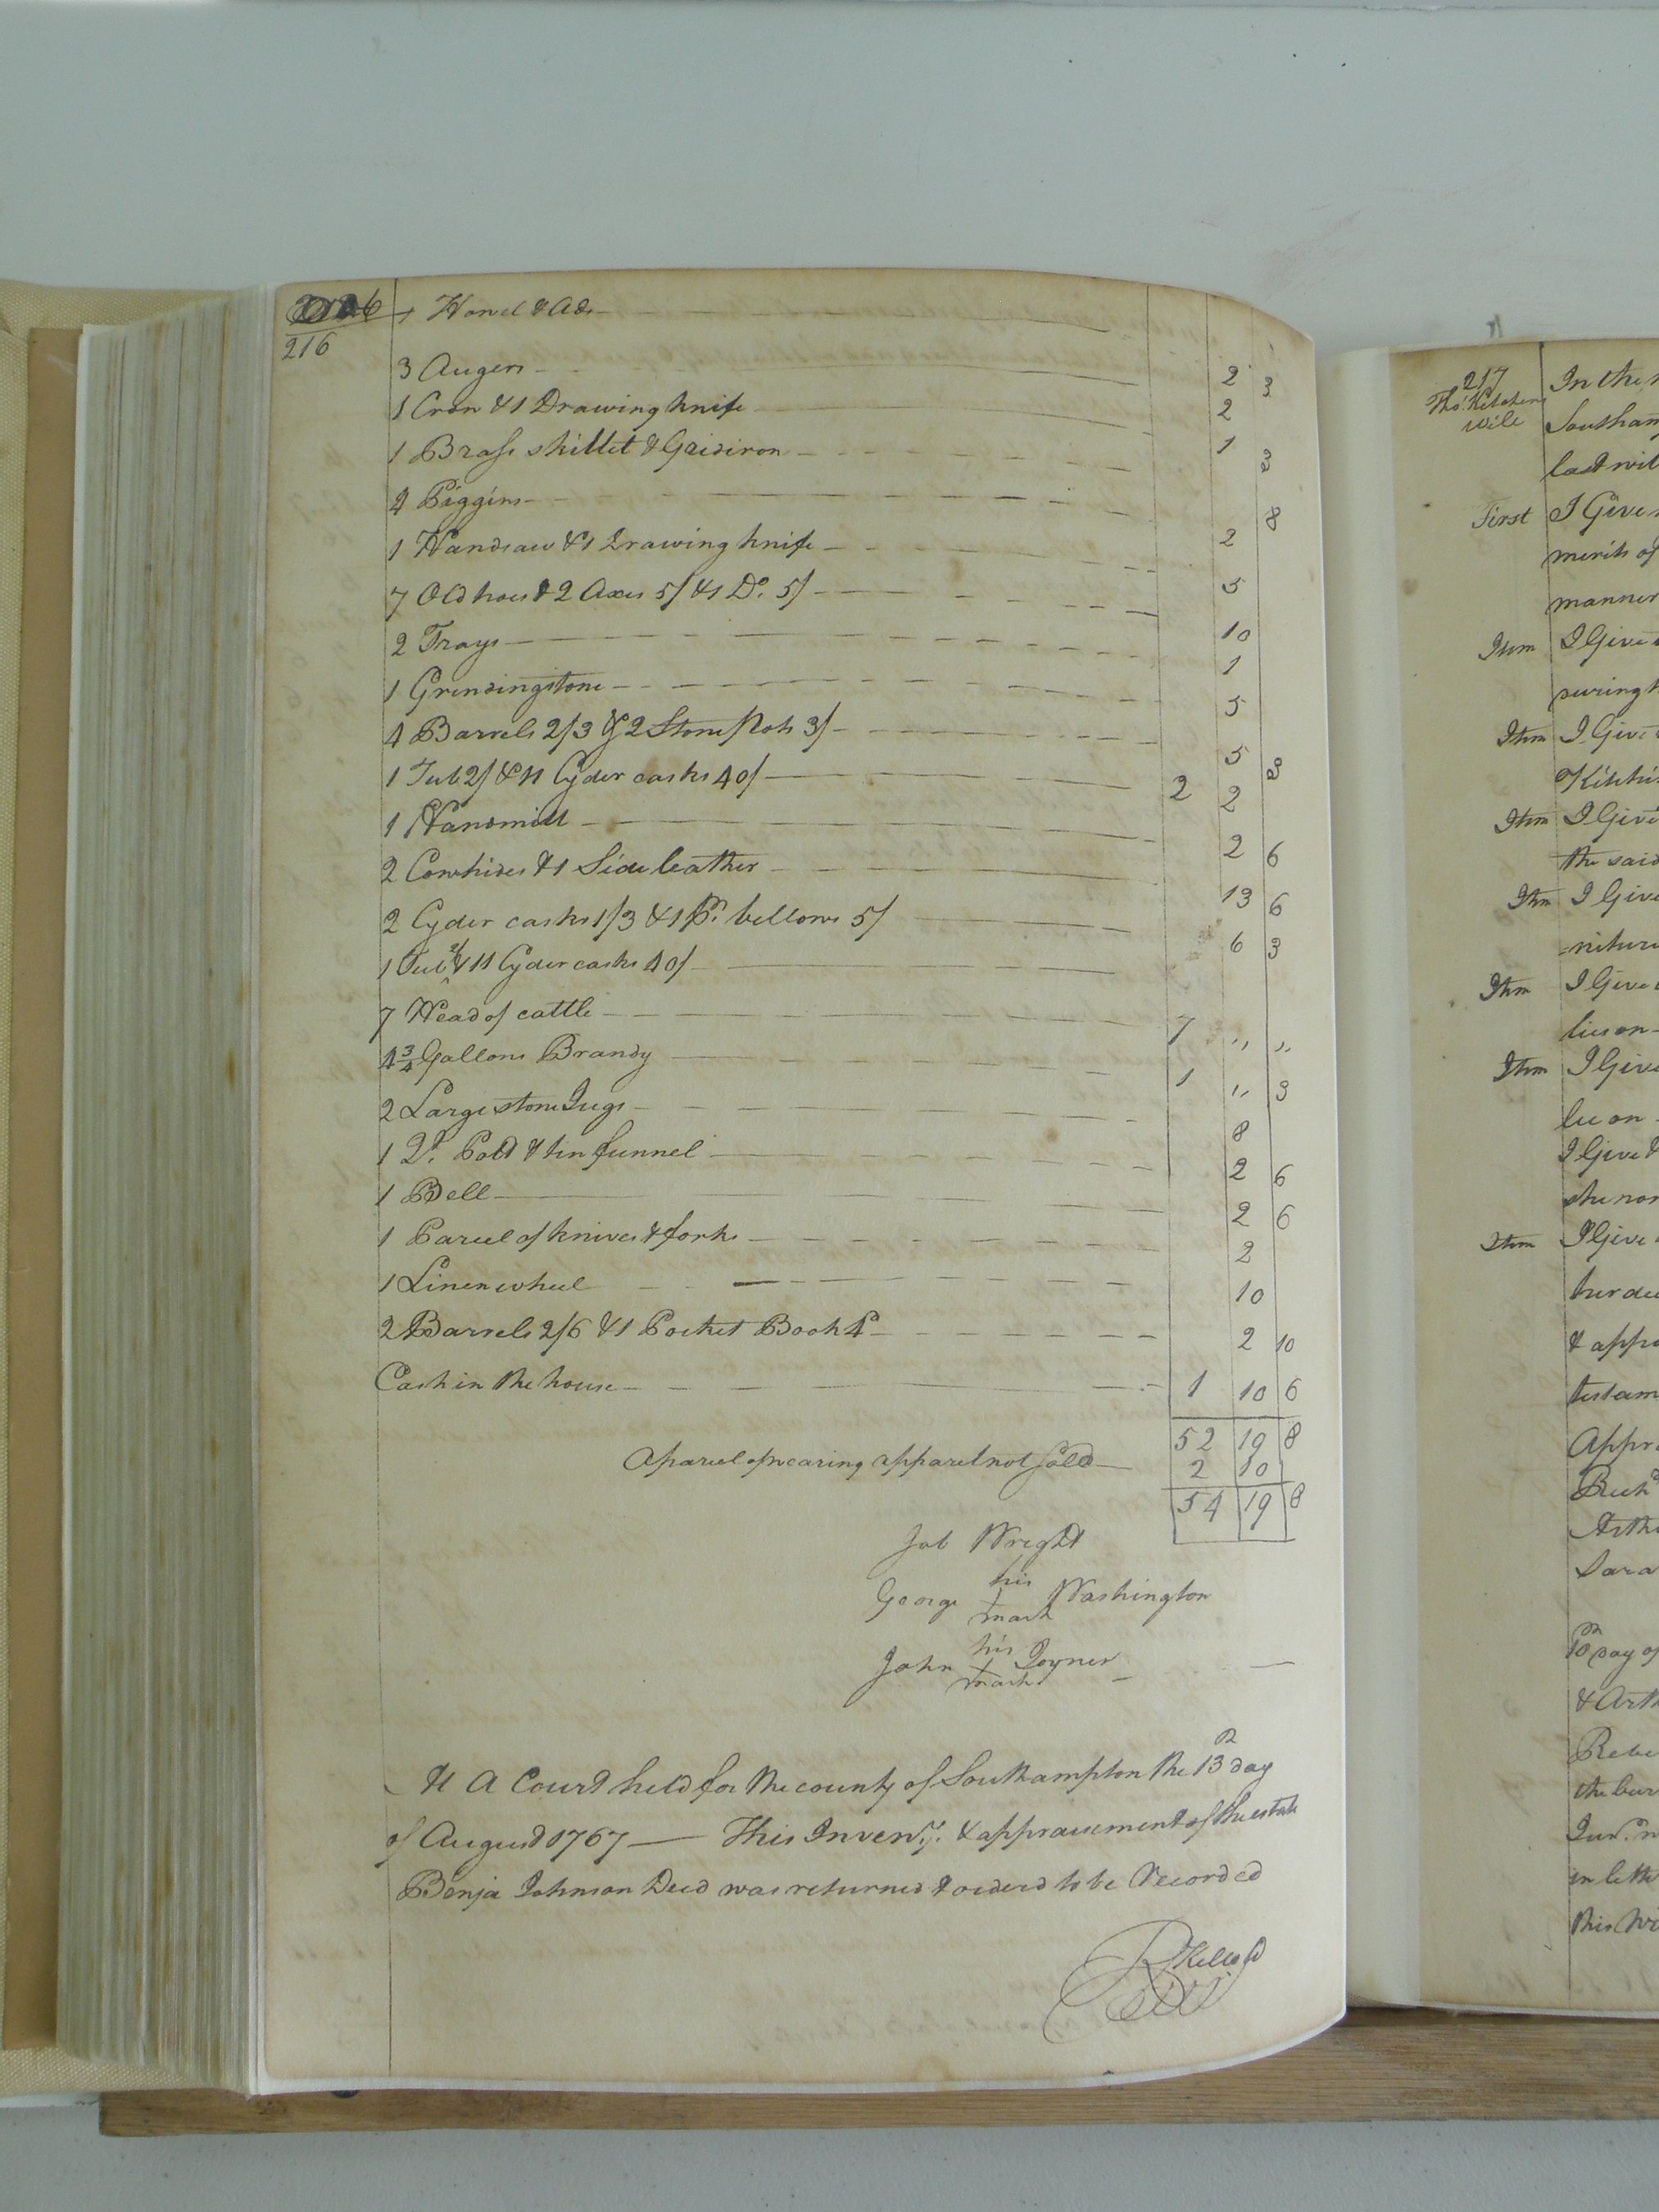 216
1 Howel & Ads
3 Augers 2 3
1 Cron & 1 Drawing knife 2
1 Brass skillet & Gridiron 1 3
4 Piggins 8
1 Handsaw & 1 Drawing knife 2
7 Old hoes & 2 Axes 5/ & 1 Do. 5/ 5
2 Trays 10
1 Grindingstone 1
4 Barrels 2/3 & 2 Stone Pots 3/ 5
1 Tub 2/ & 11 Cyder casks 40/ 5 3
1 Handmill 2 2
2 Cowhides & 1 Side leather 2 6
2 Cyder casks 1/3 & 1 pr. bellows 5/ 13 6
1 Tub 2/ & 11 Cyder casks 40/ 6 3
7 Head of cattle
4 3/4 Gallons Brandy 7 " "
2 Large stone Jugs 1 " 3
1 Qt. Pott & tin funnel 8
1 Bell 2 6
1 Parcel of knives & forks 2 6
1 Linen wheel 2
2 Barrels 2/6 & 1 Pocket Book 4d 10
2 10
Cash in the house 1 10 6
52 19 8
A parcel of wearing apparel not sold 2 10
54 19 8
Job Wright
his
George + Washington
mark
his
John + Joyner
mark
At A Court held for the county of Southampton the 13th day
of August 1767 — This Inventy. & appraisement of the estate
Benja Johnson Decd was returned & orderd to be Recorded
R Kello
217
Tho. Kitchens
will
In the
Southam
last wil
First I Give
merits of
manner
Item I Give
during h
Item I Give
Kitchi
Item I Give
the said
Item I Give
=niture
Item I Give
lies on
Item I Give
lie on
I Give &
she nor
Item I Give
her de
& appo
testam
Appr
Arth
Sara
10th day of
& Arth
Rebe
the bur
in lette
this Wi